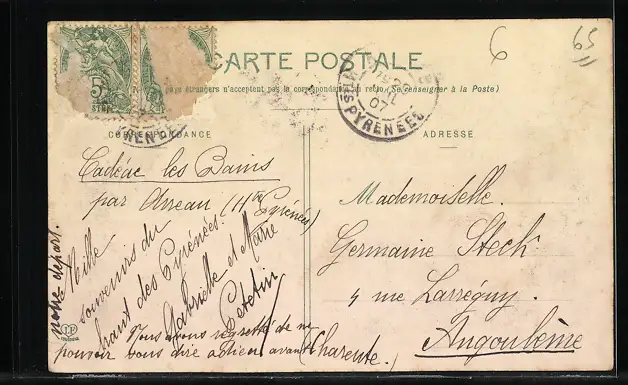 CARTE POSTALE
6
65
pays étrangers n'acceptent pas la correspondance au recto (Se renseigner à la Poste)
5c
07
PYRÉNÉES
CORRESPONDANCE
ADRESSE
Cadéac les Bains
par Arreau (Htes Pyrénées)
Mille
souvenirs du
haut des Pyrénées.
Gabrielle et Marie
Petetin
Nous avons regretté de ne
pouvoir vous dire adieu avant
notre départ.
Mademoiselle
Germaine Steck
4 rue Larréguy.
Angoulême
(Charente.)